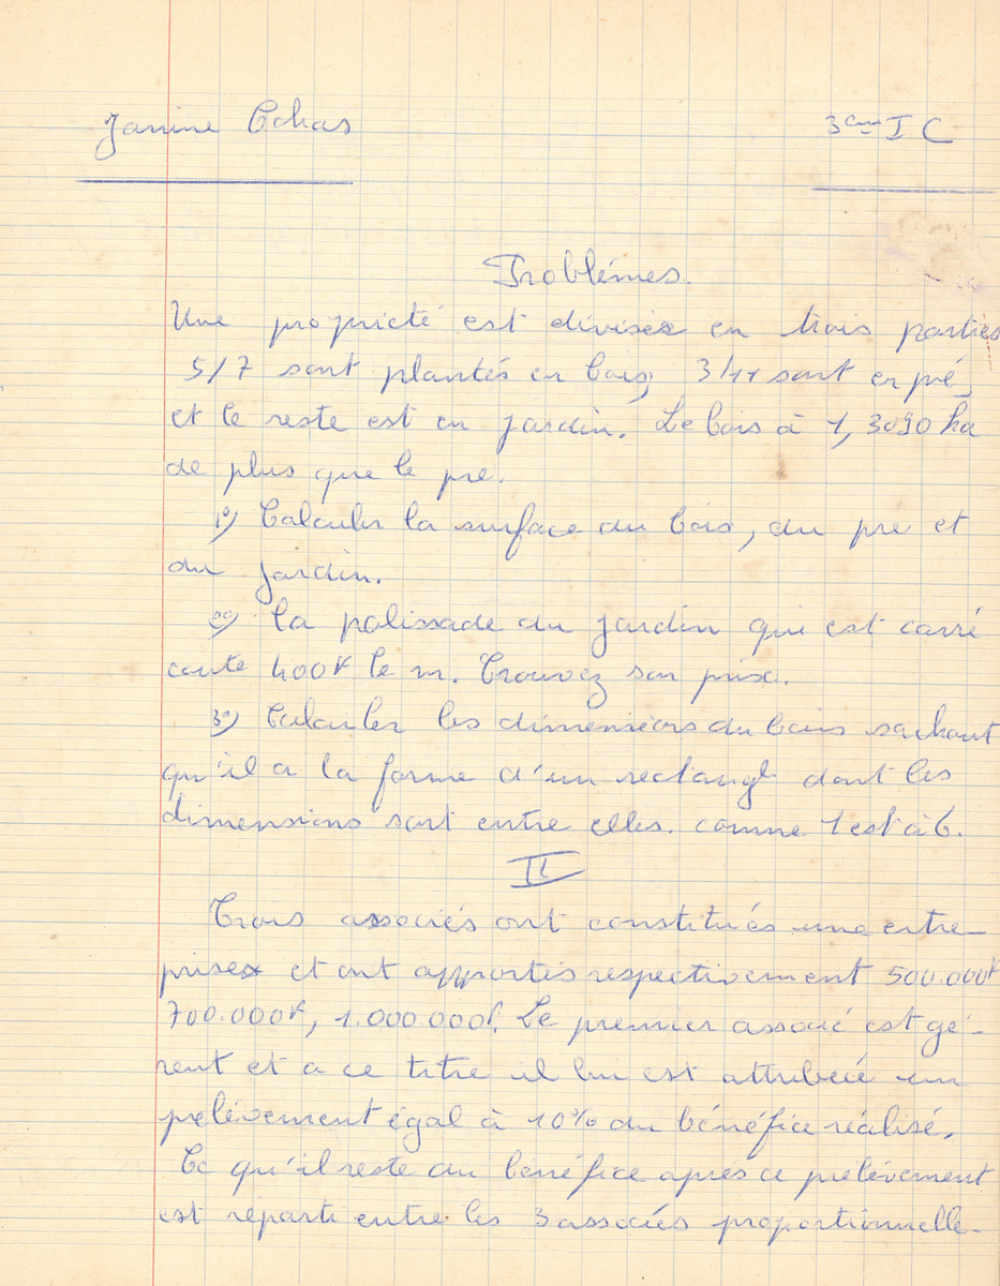 Janine Cchas 3ème I C
Problémes.
Une propriété est divisée en trois parties
5/7 sont plantés en bois, 3/11 sont en pré,
et le reste est en jardin. Le bois à 1,3090 ha
de plus que le pre.
1º) Calculer la surface du bois, du pre et
du jardin.
2º) La palissade du jardin qui est carré
coute 400F le m. Trouvez son prix.
3º) Calculer les dimensions du bois sachant
qu'il a la forme d'un rectangl dont les
dimensions sont entre elles. comme 1 est à 6.
II
Trois associés ont constitués une entre-
prise et ont apportés respectivement 500.000F
700.000F, 1.000.000F. Le premier associé est gé-
rent et a ce titre il lui est attribué un
pelévement égal à 10% du bénéfice réalisé.
Ce qu'il reste du bénéfice aprés ce prélévement
est réparti entre les 3 associés proportionnelle-